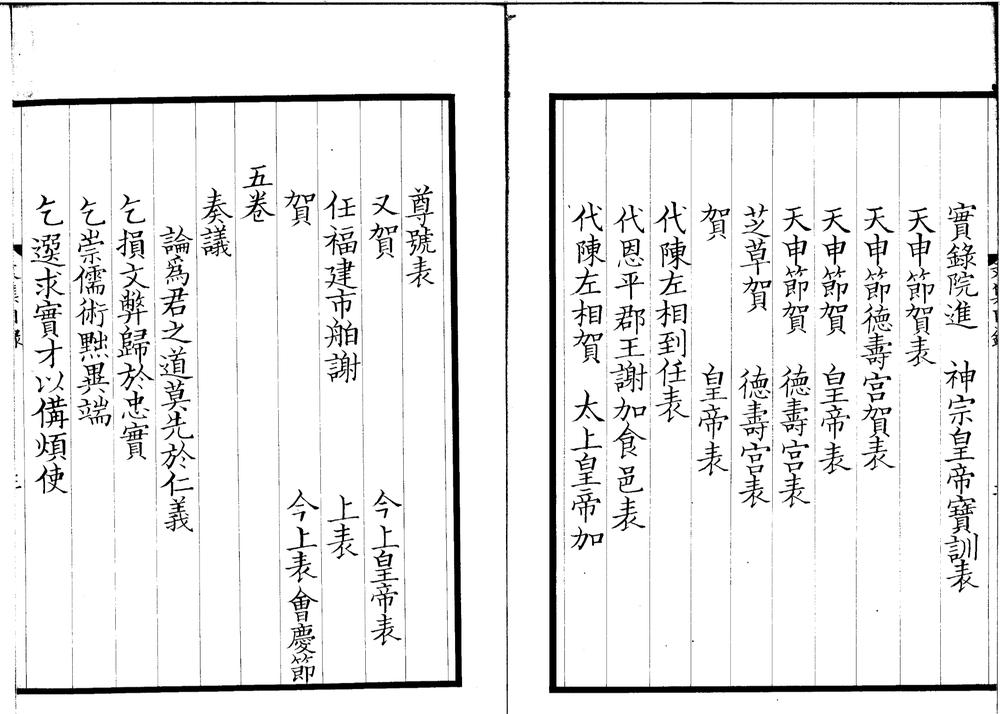 實錄院進　神宗皇帝寶訓表
天申節賀表
天申節德壽宮賀表
天申節賀　皇帝表
天申節賀　德壽宮表
芝草賀　德壽宮表
賀　皇帝表
代陳左相到任表
代恩平郡王謝加食邑表
代陳左相賀　太上皇帝加
尊號表
又賀　今上皇帝表
任福建市舶謝　上表
賀　今上表會慶節
五卷
奏議
論爲君之道莫先於仁義
乞損文弊歸於忠實
乞崇儒術黜異端
乞選求實才以備煩使